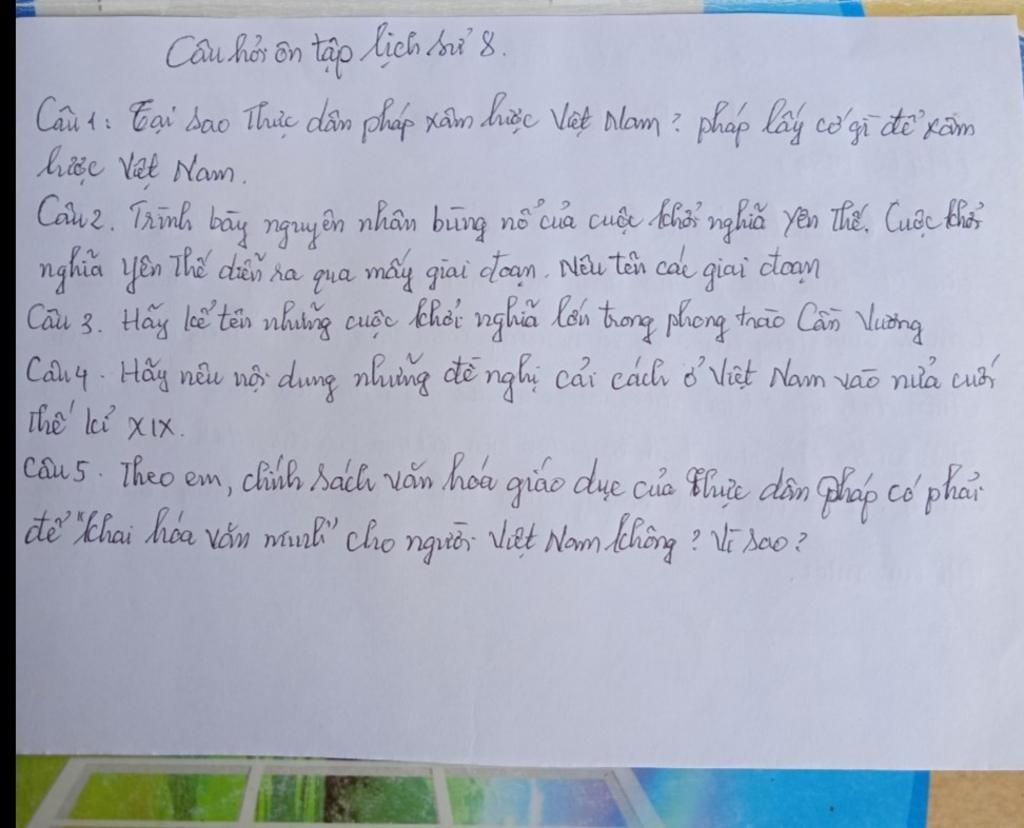 Câu hỏi ôn tập lịch sử 8.
Câu 1: Tại sao Thực dân pháp xâm lược Việt Nam? pháp lấy cớ gì để xâm
lược Việt Nam.
Câu 2. Trình bày nguyên nhân bùng nổ của cuộc khởi nghĩa yên thế. Cuộc khởi
nghĩa yên Thế diễn ra qua mấy giai đoạn. Nêu tên các giai đoạn
Câu 3. Hãy kể tên những cuộc khởi nghĩa lớn trong phong trào Cần Vương
Câu 4. Hãy nêu nội dung những đề nghị cải cách ở Việt Nam vào nửa cuối
Thế kỉ XIX.
Câu 5. Theo em, chính sách văn hóa giáo dục của Thực dân pháp có phải
để "khai hóa văn minh" cho người Việt Nam không? Vì sao?